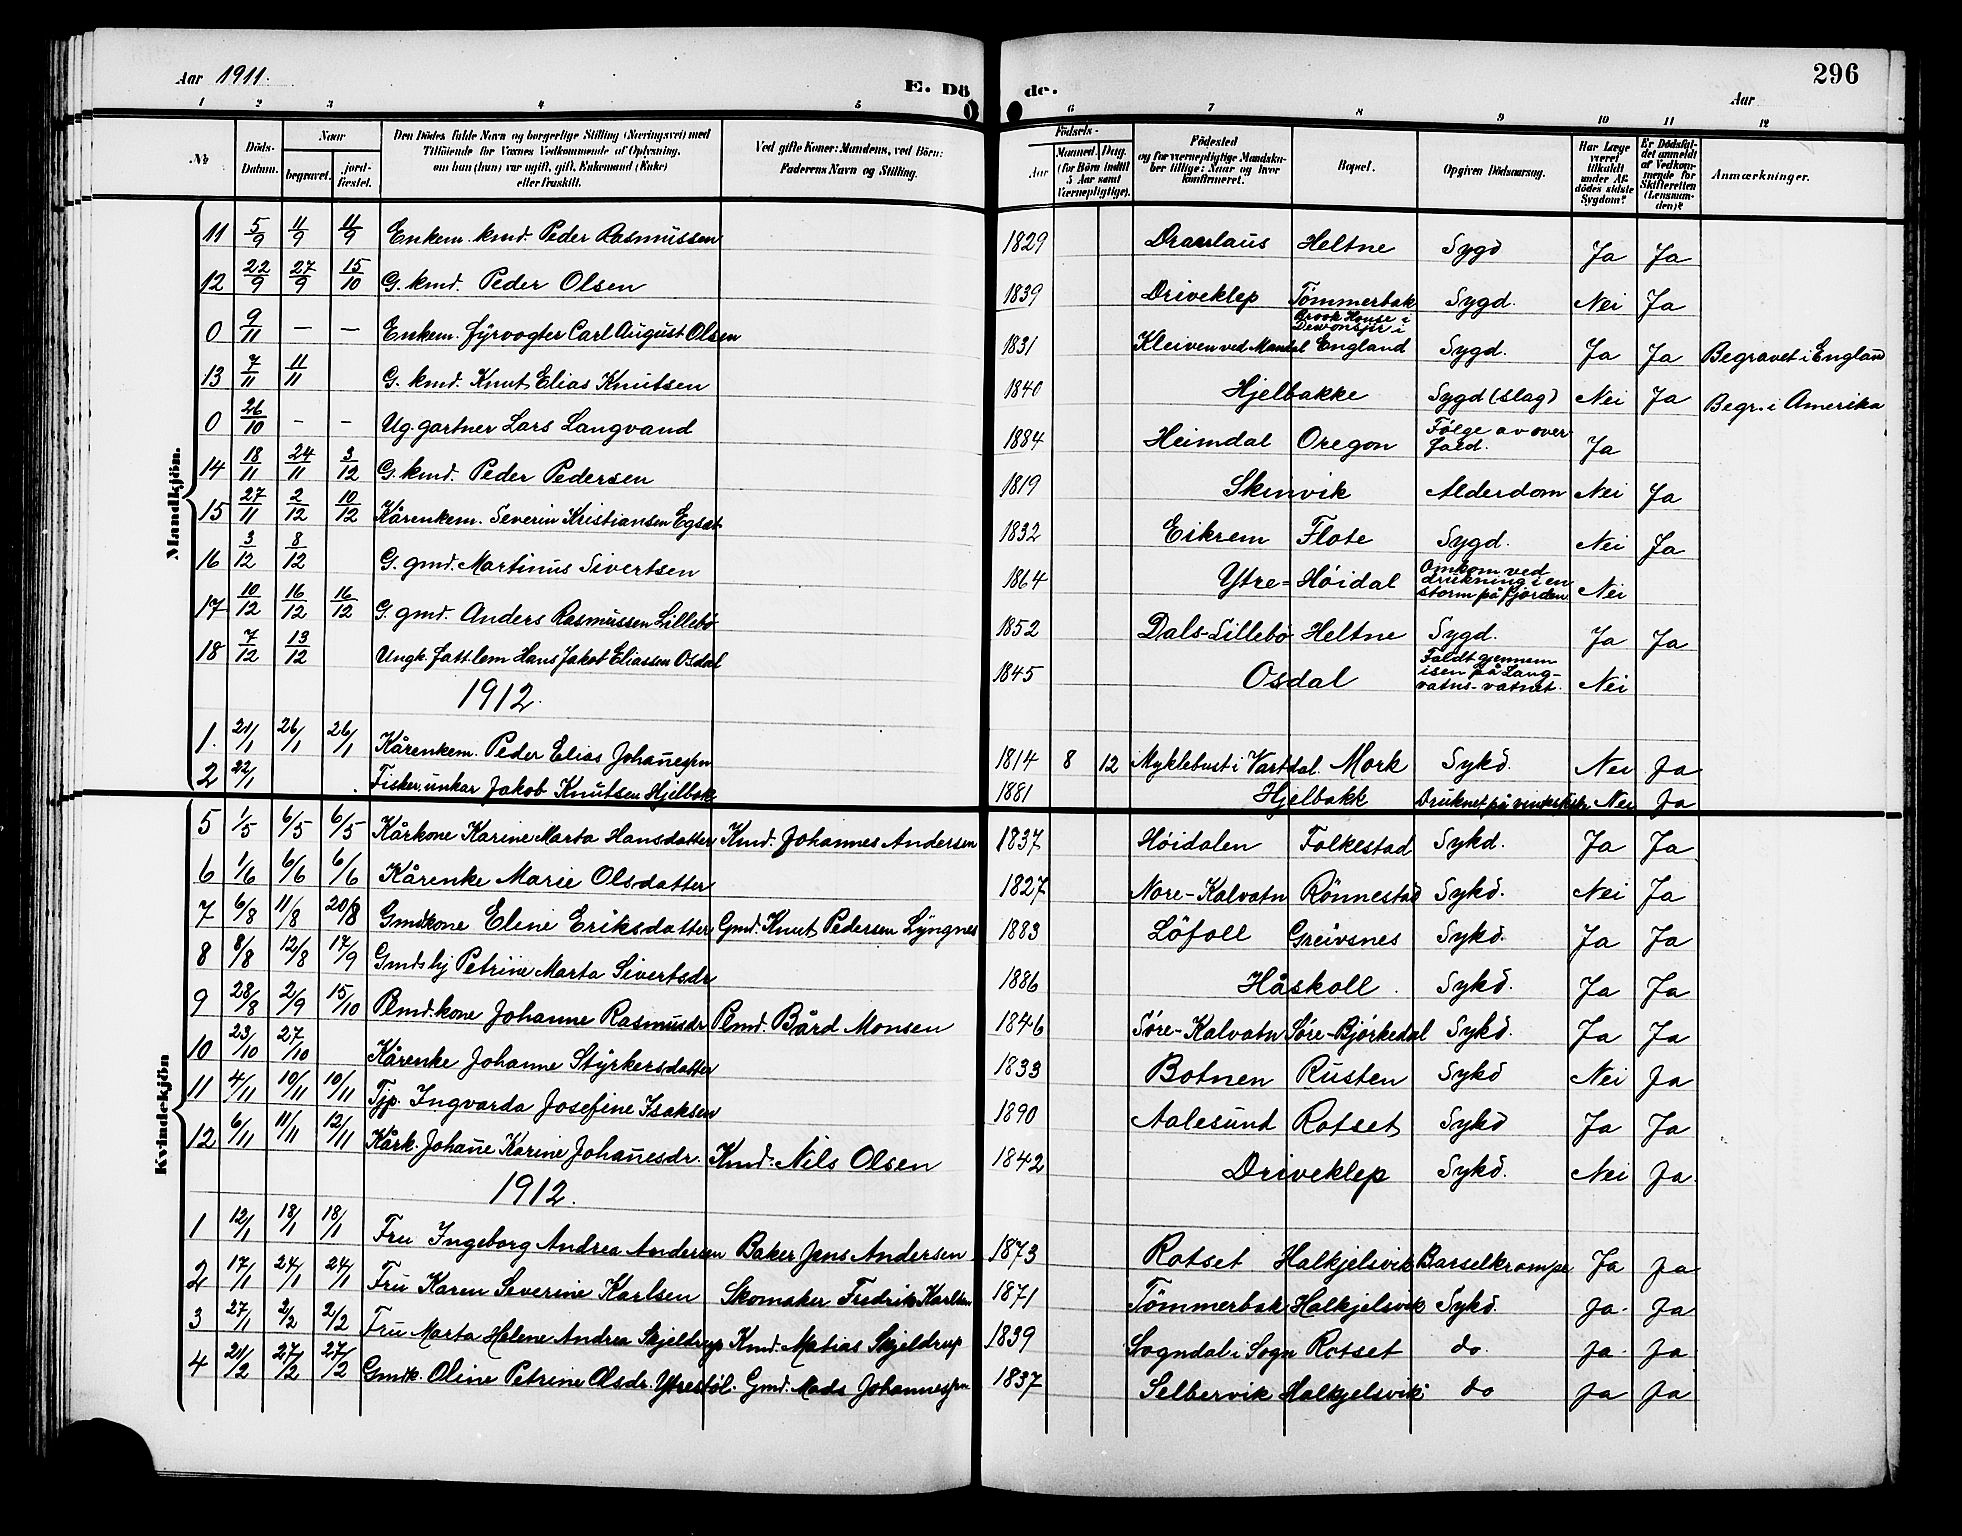 Aar 1911.
E. Döde.
Aar
296
1 2 3 4 5 6 7 8 9 10 11 12
No
Döds-Datum.
Naar
begravet.
jord-fæstet.
Den Dödes fulde Navn og borgerlige Stilling (Næringsvei) med
Tilföiende for Voxnes Vedkommende af Oplysning,
om han (hun) var ugift, gift, Enkemand (Enke)
eller fraskilt.
Ved gifte Koner: Mandens, ved Börn:
Faderens Navn og Stilling.
Födsels-
Aar
Maaned. Dag.
(for Börn indtil
5 Aar samt
Værnepligtige).
Födested
og for værnepligtige Mandska-
ber tillige: Naar og hvor
konfirmeret.
Bopæl.
Opgiven Dödsaarsag.
Har Læge
været
tilkaldt
under Af-
dödes sidste
Sygdom?
Er Dödsfal-
det anmeldt
af Vedkom-
mende for
Skifteretten
(Lensman-
den)?
Anmærkninger.
Mandkjön.
11 5/9 11/9 11/9 Enkem. kmd. Peder Rasmussen 1829 Draulaus Heltne Sygd Ja Ja
12 22/9 27/9 15/10 G. kmd. Peder Olsen 1839 Driveklep Tömmerbak Sygd. Nei Ja
0 9/11 – – Enkem. fyrvogter Carl August Olsen 1831 Kleiven ved Mandal Brook House i Dewonsjir i England Sygd. Ja Ja Begravet i England
13 7/11 11/11 G. kmd. Knut Elias Knutsen 1840 Hjelbakke Sygd (slag) Nei Ja
0 26/10 – – Ug. gartner Lars Langvand 1884 Heimdal Oregon Følge av overfald. Ja Begr. i Amerika
14 18/11 24/11 3/12 G. kmd. Peder Pedersen 1819 Skinvik Alderdom Nei Ja
15 27/11 2/12 10/12 Kårenkem. Severin Kristiansen Egset 1832 Eikrem Flote Sygd. Nei Ja
16 3/12 8/12 G. gmd. Martinus Sivertsen 1864 Ytre-Høidal Omkom ved drukning i en storm på fjorden Nei
17 10/12 16/12 16/12 G. gmd. Anders Rasmussen Lillebø 1852 Dals-Lillebø Heltne Sygd. Ja Ja
18 7/12 13/12 Ungk. fattlem Hans Jakob Eliassen Osdal 1845 Osdal Faldt gjennem isen på Langvatns-vatnet. Nei
1912.
1. 21/1 26/1 26/1 Kårenkem. Peder Elias Johañesen 1814 8 12 Myklebust i Vartdal. Mork Sykd. Nei Ja
2 22/1 Fisker, unkar Jakob Knutsen Hjelbak 1881 Hjelbakk Druknet på Nei Ja
Kvindekjön
5 1/5 6/5 6/5 Kårkone Karine Marta Hansdatter Kmd. Johannes Andersen 1837 Høidalen Folkestad Sykd. Ja Ja
6 1/6 6/6 6/6 Kårenke Marie Olsdatter 1827 Nore-Kalvatn Rønnestad Sykd. Nei Ja
7 6/8 11/8 20/8 Gmdkone Eline Eriksdatter Gmd. Knut Pedersen Lyngnes 1883 Løfoll Greivsnes Sykd. Ja Ja
8 8/8 12/8 17/9 Gmds hj Petrine Marta Sivertsdr 1886 Håskoll Sykd. Ja Ja
9 28/8 2/9 15/10 Plmd.kone Johanne Rasmusdr Plmd. Bård Monsen 1846 Søre-Kalvatn Søre-Bjørkedal Sykd. Ja Ja
10 23/10 27/10 Kårenke Johanne Styrkersdatter 1833 Botnen Rusten Sykd Nei Ja
11 4/11 10/11 10/11 Tjp. Ingvarda Josefine Isaksen 1890 Aalesund Rotset Sykd Ja Ja
12 6/11 11/11 12/11 Kårk. Johañe Karine Johañesdr. Kmd. Nils Olsen 1842 Driveklep Sykd. Nei Ja.
1912.
1 12/1 18/1 18/1 Fru Ingeborg Andrea Andersen Baker Jens Andersen 1873 Rotset Halkjelsvik Barselkrampe Ja Ja
2 17/1 24/1 24/1 Fru Karen Severine Karlsen Skomaker Fredrik Karlsen 1871 Tömmerbak Halkjelsvik Sykd. Ja. Ja
3 27/1 2/2 2/2 Fru Marta Helene Andrea Skjeldrup Kmd. Matias Skjeldrup 1839 Sogndal i Sogn Rotset do. Ja. Ja
4 21/2 27/2 27/2 Gmdk. Oline Petrine Olsdr. Ytrestøl. Gmd. Mads Johannessen 1837 Selbervik Halkjelsvik do Ja Ja